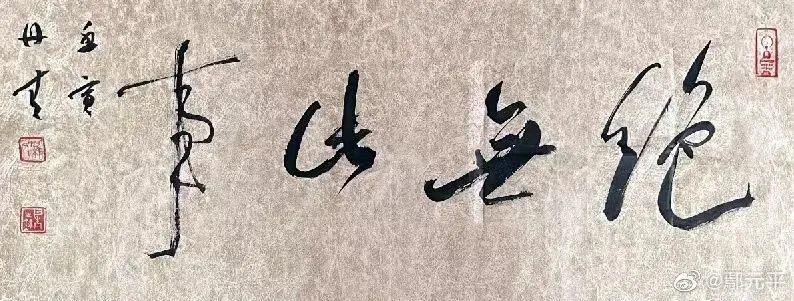 絶無此事
壬寅
丹青
@鄢元平